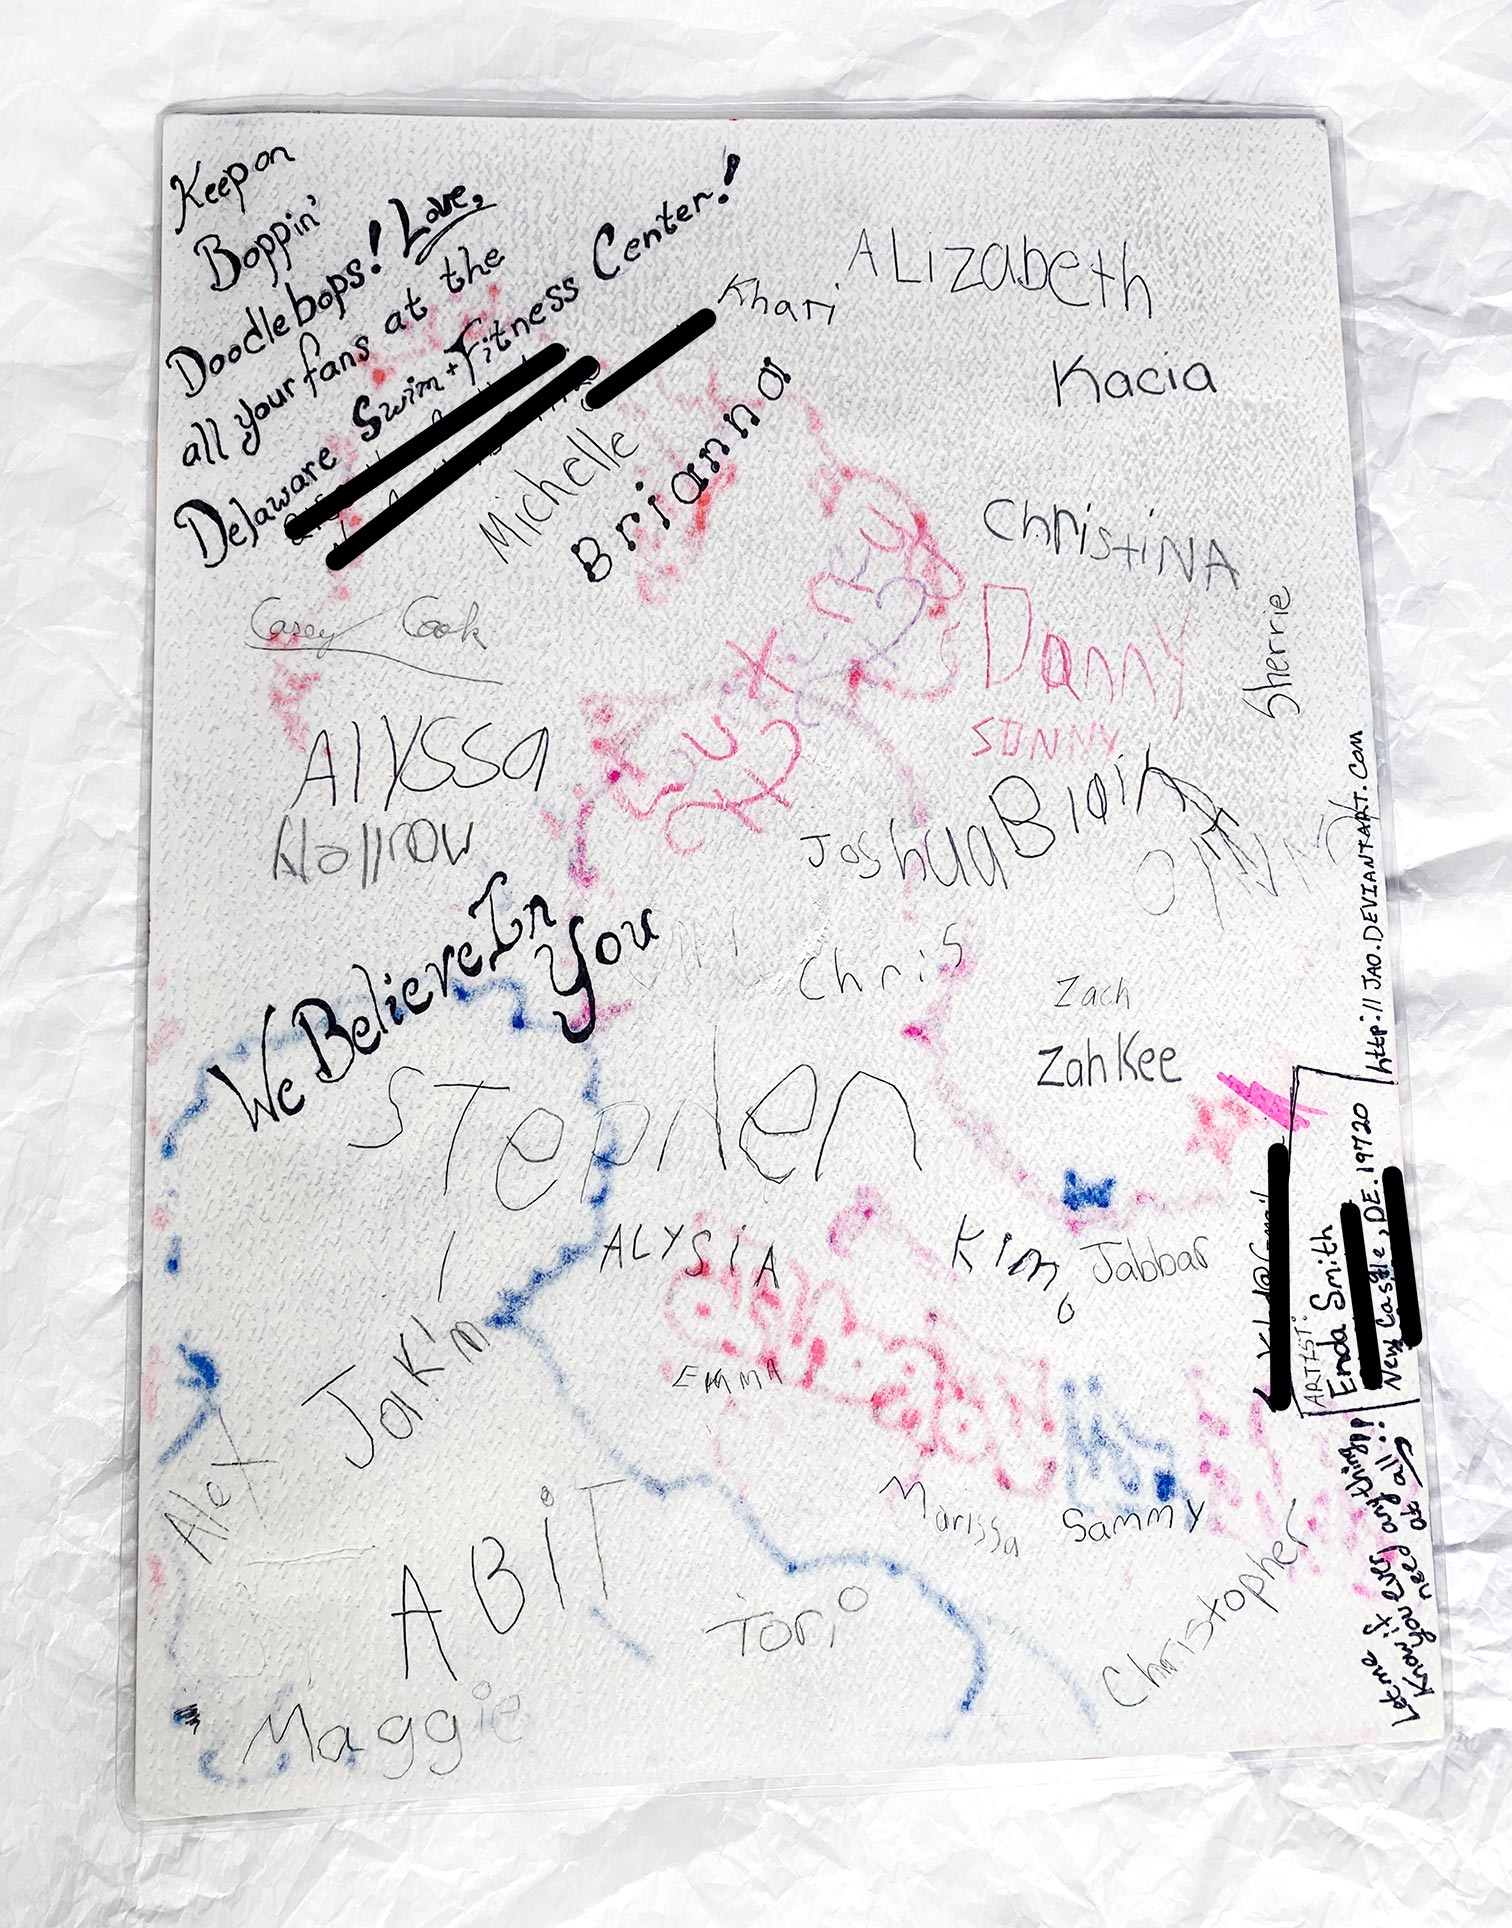 Keep on
Boppin'
Doodlebops! Love,
all your fans at the
Delaware Swim + Fitness Center!
Khari
ALizabeth
Kacia
Michelle
Brianna
ChristiNA
Casey Cook
Danny
SUNNY
Sherrie
ALYSSA
Joshua
Blair
We Believe In
You
Chris
Zach
ZahKee
STephen
ALYSiA
Kim
Jabbar
JaKim
EMMA
Alex
Marissa
Sammy
Christopher
ABiT
Tori
Maggie
http://JAO.DEVIANTART.COM
ARTIST:
Enda Smith
New Castle, DE. 19720
Let me know if ever
you need anything!!!
at all!!